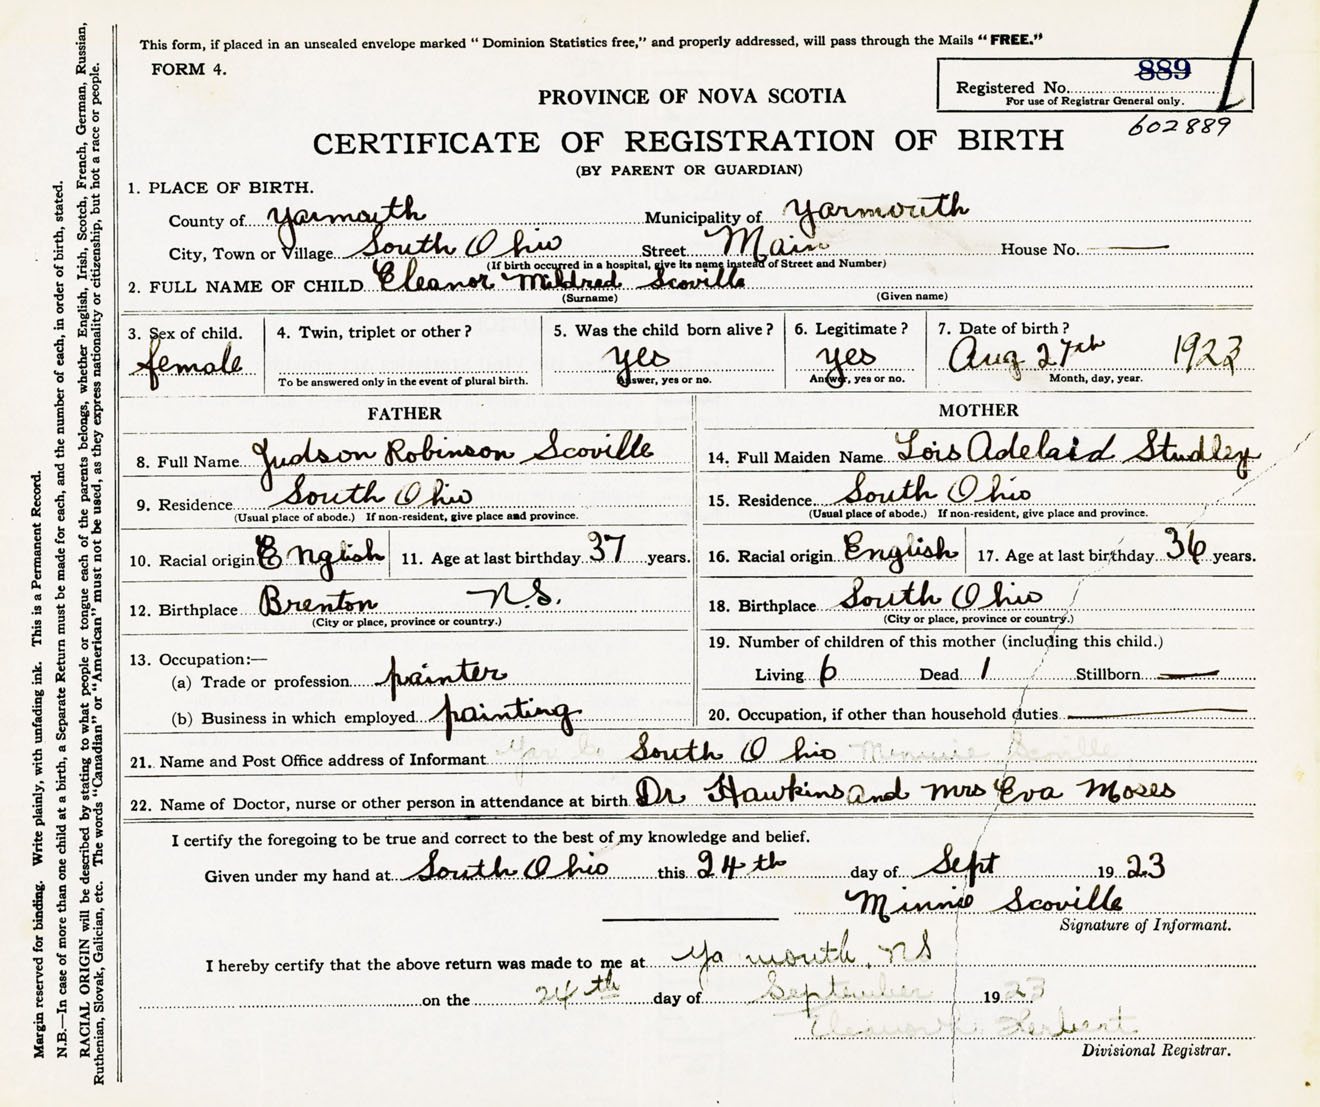 This form, if placed in an unsealed envelope marked “ Dominion Statistics free,” and properly addressed, will pass through the Mails “ FREE.”
FORM 4.
889
Registered No.
For use of Registrar General only.
602889
PROVINCE OF NOVA SCOTIA
CERTIFICATE OF REGISTRATION OF BIRTH
(BY PARENT OR GUARDIAN)
1. PLACE OF BIRTH.
County of Yarmouth Municipality of Yarmouth
City, Town or Village South Ohio Street Main House No. —
(If birth occurred in a hospital, give its name instead of Street and Number)
2. FULL NAME OF CHILD Eleanor Mildred Scoville
(Surname) (Given name)
3. Sex of child. female
4. Twin, triplet or other ?
To be answered only in the event of plural birth.
5. Was the child born alive ? yes
Answer, yes or no.
6. Legitimate ? yes
Answer, yes or no.
7. Date of birth ? Aug 27th 1923
Month, day, year.
FATHER
8. Full Name Judson Robinson Scoville
9. Residence South Ohio
(Usual place of abode.) If non-resident, give place and province.
10. Racial origin English 11. Age at last birthday 37 years.
12. Birthplace Brenton N.S.
(City or place, province or country.)
13. Occupation:—
(a) Trade or profession painter
(b) Business in which employed painting
MOTHER
14. Full Maiden Name Lois Adelaid Studley
15. Residence South Ohio
(Usual place of abode.) If non-resident, give place and province.
16. Racial origin English 17. Age at last birthday 36 years.
18. Birthplace South Ohio
(City or place, province or country.)
19. Number of children of this mother (including this child.)
Living 6 Dead 1 Stillborn —
20. Occupation, if other than household duties —
21. Name and Post Office address of Informant Yar Co South Ohio Minnie Scoville
22. Name of Doctor, nurse or other person in attendance at birth Dr Hawkins and Mrs Eva Moses
I certify the foregoing to be true and correct to the best of my knowledge and belief.
Given under my hand at South Ohio this 24th day of Sept 1923
Minnie Scoville
Signature of Informant.
I hereby certify that the above return was made to me at Ya mouth, NS
on the 24th day of September 1923
Herbert
Divisional Registrar.
Margin reserved for binding. Write plainly, with unfading ink. This is a Permanent Record.
N.B.—In case of more than one child at a birth, a Separate Return must be made for each, and the number of each, in order of birth, stated.
RACIAL ORIGIN will be described by stating to what people or tongue each of the parents belongs, whether English, Irish, Scotch, French, German, Russian,
Ruthenian, Slovak, Galician, etc. The words “Canadian” or “American” must not be used, as they express nationality or citizenship, but not a race or people.